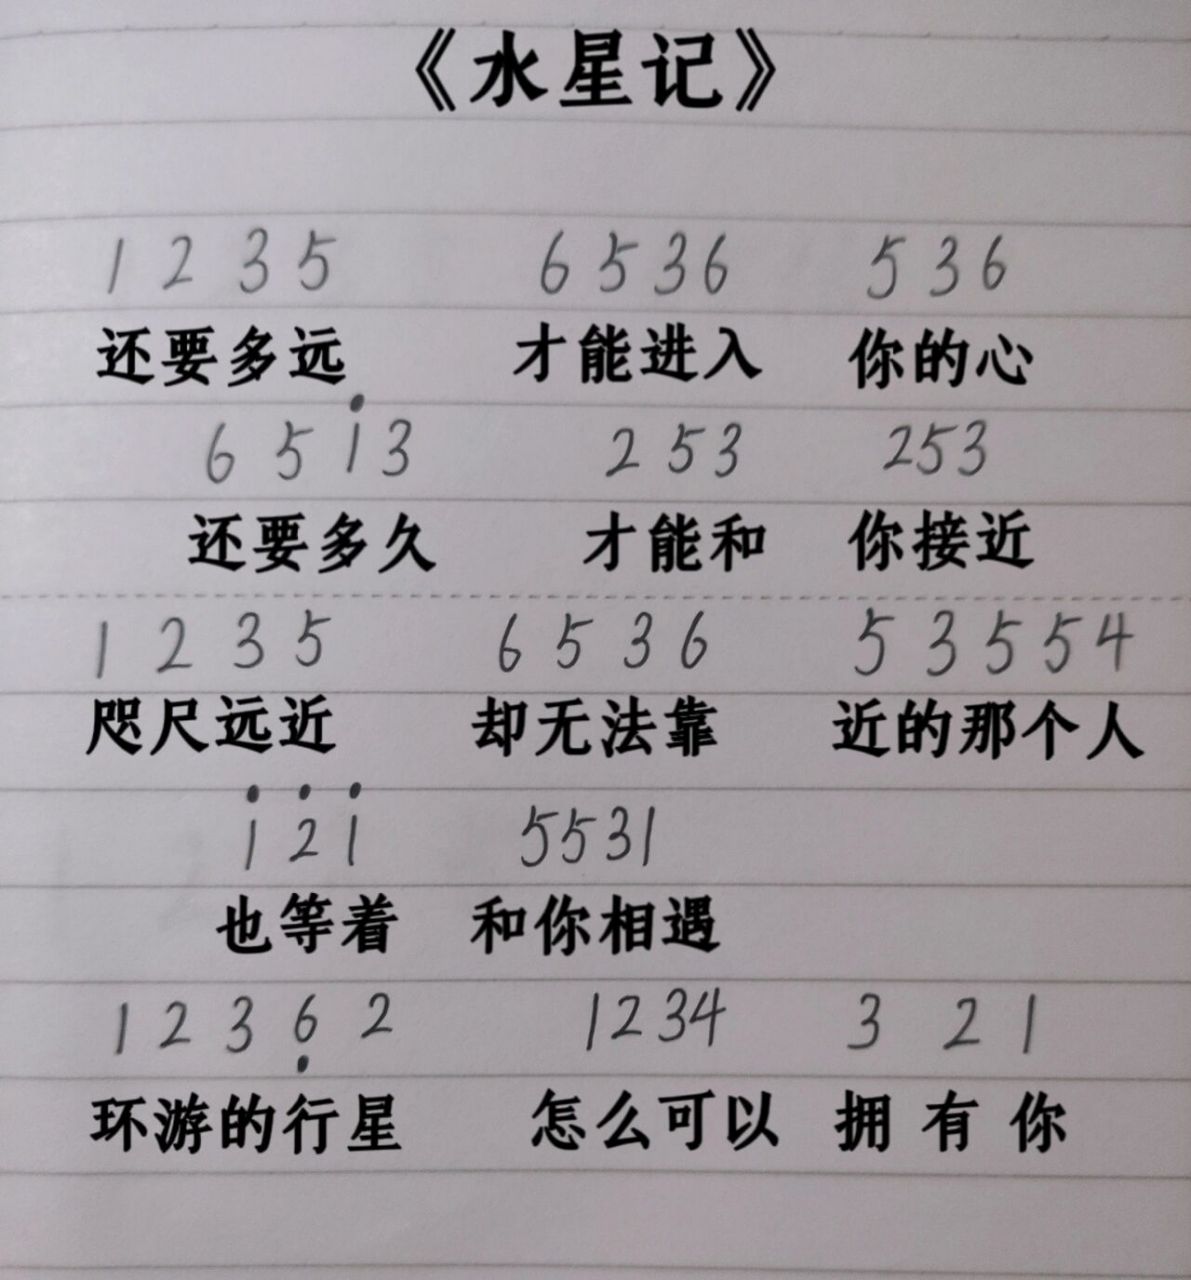 《水星记》
1 2 3 5 6 5 3 6 5 3 6
还要多远 才能进入 你的心
6 5 1̇ 3 2 5 3 2 5 3
还要多久 才能和 你接近
1 2 3 5 6 5 3 6 5 3 5 5 4
咫尺远近 却无法靠 近的那个人
1̇ 2̇ 1̇ 5 5 3 1
也等着 和你相遇
1 2 3 6̣ 2 1 2 3 4 3 2 1
环游的行星 怎么可以 拥 有 你